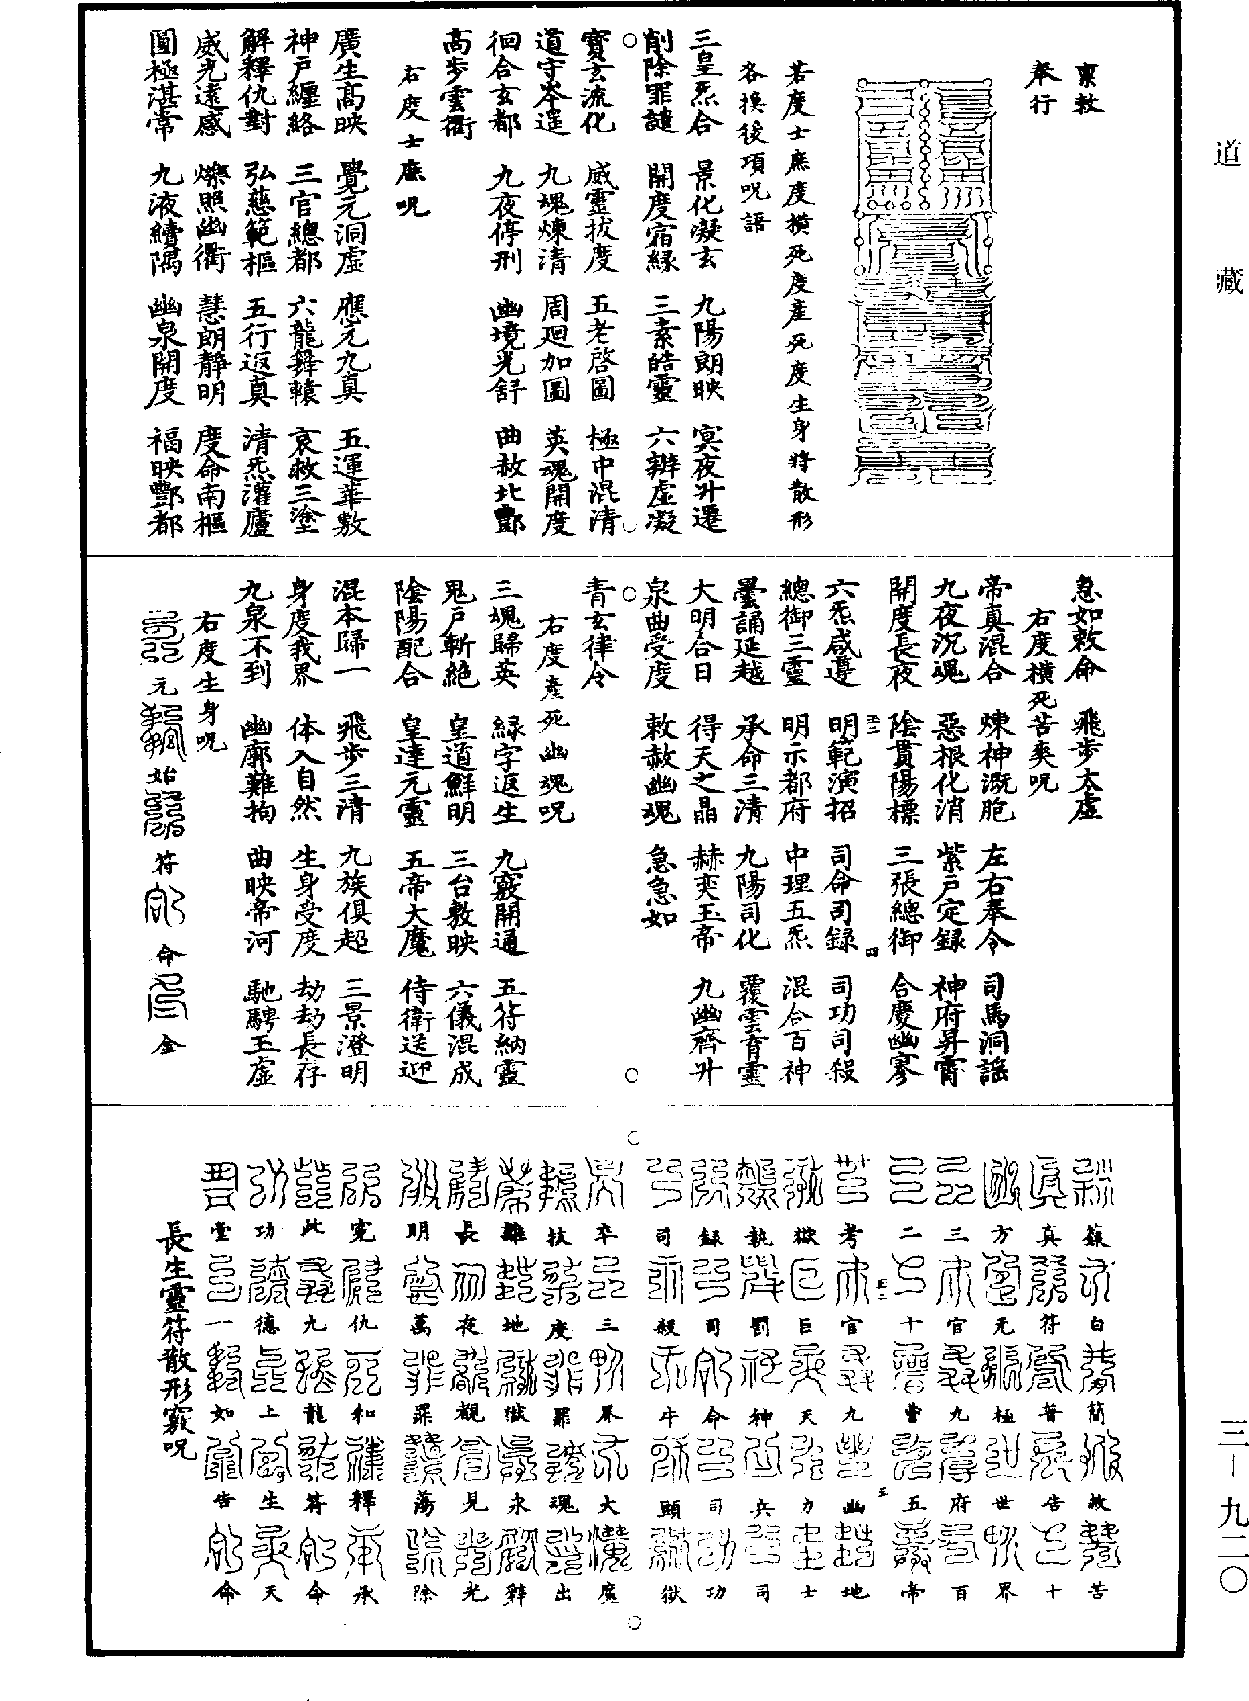 道藏
三一九二〇
稟教
奉行
若度士庶度橫死度產死度生身將散形
各換後項呪語
三皇炁合 景化凝玄 九陽朗映 冥夜升遷
削除罪譴 開度宿緣 三素皓靈 六辨虛凝
寶玄流化 威靈拔度 五老啓圖 極中混清
道守岑遥 九魂煉清 周廻加圖 英魂開度
徊合玄都 九夜停刑 幽境光舒 曲赦北酆
高步雲衢
右度士庶呪
廣生高映 覺元洞虛 應元九真 五運華敷
神戶纏絡 三官總都 六龍舞轅 哀救三塗
解釋仇對 弘慈範樞 五行返真 清炁灌廬
威光遠感 爍照幽衢 慧朗靜明 度命南樞
圓極湛常 九液續隅 幽泉開度 福映酆都
急如敕命 飛步太虛
右度橫死苦爽呪
帝真混合 煉神溉胞 左右奉令 司馬洞謡
九夜沉魂 惡根化消 紫戶定録 神府昇霄
開度長夜 陰貫陽標 三張總御 合慶幽寥
五二 四
六炁咸遵 明範演招 司命司録 司功司殺
總御三靈 明示都府 中理五炁 混合百神
曇誦延越 承命三清 九陽司化 覆雲育靈
大明合日 得天之晶 赫奕玉帝 九幽齊升
泉曲受度 敕赦幽魂 急急如
青玄律令
右度產死幽魂呪
三魂歸英 綠字返生 九竅開通 五符納靈
鬼戶斬絕 皇道鮮明 三台敷映 六儀混成
陰陽配合 皇達元靈 五帝大魔 侍衛送迎
混本歸一 飛步三清 九族俱超 三景澄明
身度我界 体入自然 生身受度 劫劫長存
九泉不到 幽廓難拘 曲映帝河 馳騁玉虛
右度生身呪
元始符命金
籙白簡救苦
真符普告十
方无極世界
三官九府百
二十曹五帝
五三 五
考官九幽地
獄巨天力士
執罰神兵司
録司命司功
司殺牛頭獄
卒三界大魔
拔度罪魂出
離地獄永辭
長夜覩見光
明萬罪蕩除
冤仇和釋承
此九龍符命
功德上生天
堂一如告命
長生靈符散形竅呪